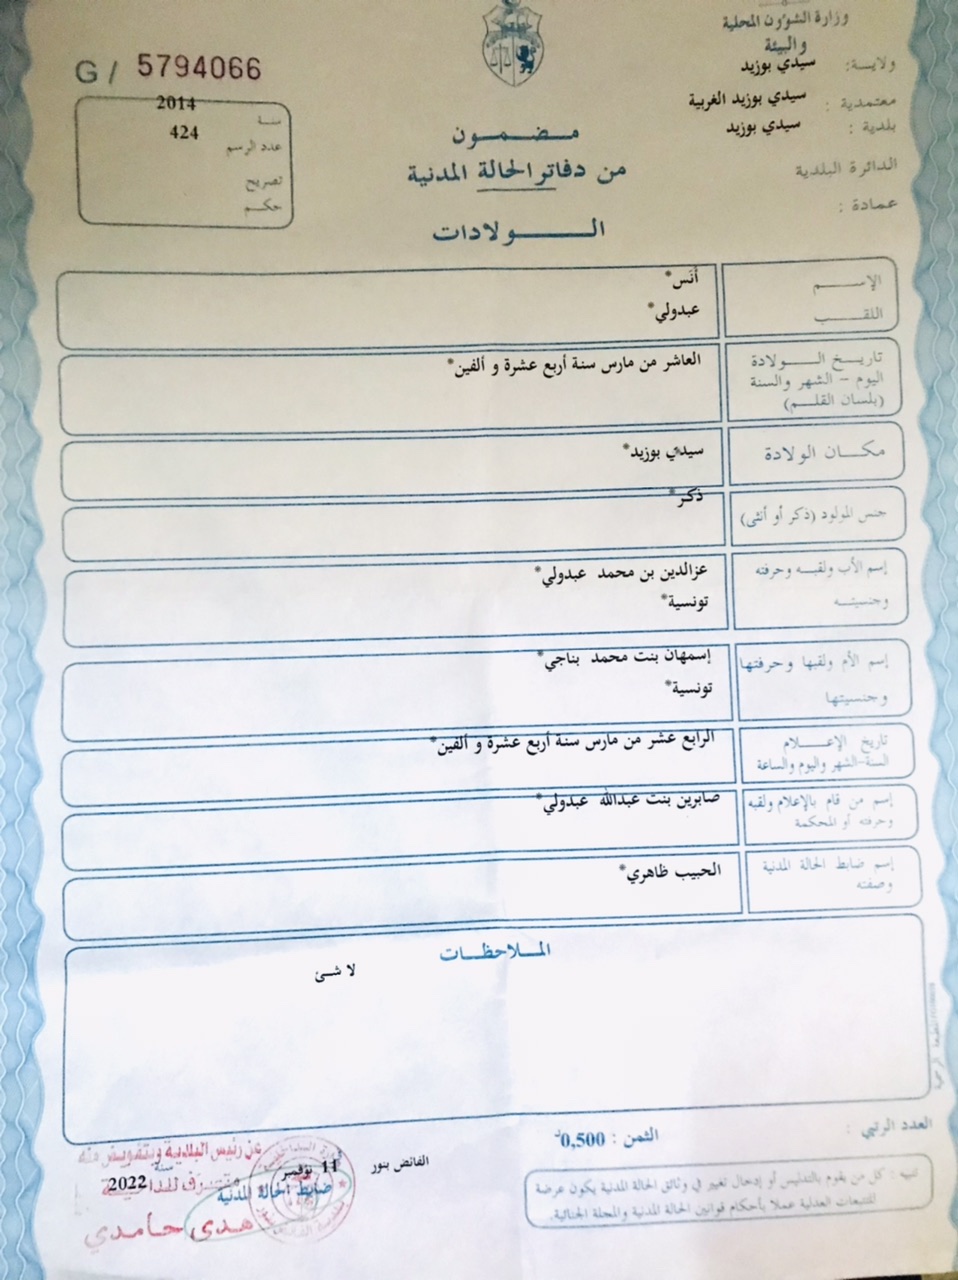 وزارة الشؤون المحلية
والبيئة
ولاية: سيدي بوزيد
معتمدية : سيدي بوزيد الغربية
بلدية : سيدي بوزيد
الدائرة البلدية
عمادة :
G / 5794066
سنة 2014
عدد الرسم 424
تصريح
حكم
مضمون
من دفاتر الحالة المدنية
الولادات
الإسم أنس*
اللقب عبدولي*
تاريخ الولادة العاشر من مارس سنة أربع عشرة و ألفين*
اليوم - الشهر والسنة
(بلسان القلم)
مكان الولادة سيدي بوزيد*
جنس المولود (ذكر أو أنثى) ذكر*
إسم الأب ولقبه وحرفته عزالدين بن محمد عبدولي*
وجنسيته تونسية*
إسم الأم ولقبها وحرفتها إسمهان بنت محمد بناجي*
وجنسيتها تونسية*
تاريخ الإعلام الرابع عشر من مارس سنة أربع عشرة و ألفين*
السنة-الشهر واليوم والساعة
إسم من قام بالإعلام ولقبه صابرين بنت عبدالله عبدولي*
وحرفته أو المحكمة
إسم ضابط الحالة المدنية الحبيب ظاهري*
وصفته
الملاحظات
لا شئ
العدد الرتبي :
الثمن : 0,500د
تنبيه : كل من يقوم بالتدليس أو إدخال تغيير في وثائق الحالة المدنية يكون عرضة
للتتبعات العدلية عملا بأحكام قوانين الحالة المدنية والمجلة الجنائية.
الفائض بنور 11 نوفمبر سنة 2022
ضابط الحالة المدنية
عن رئيس البلدية وبتفويض منه
هدى حامدي